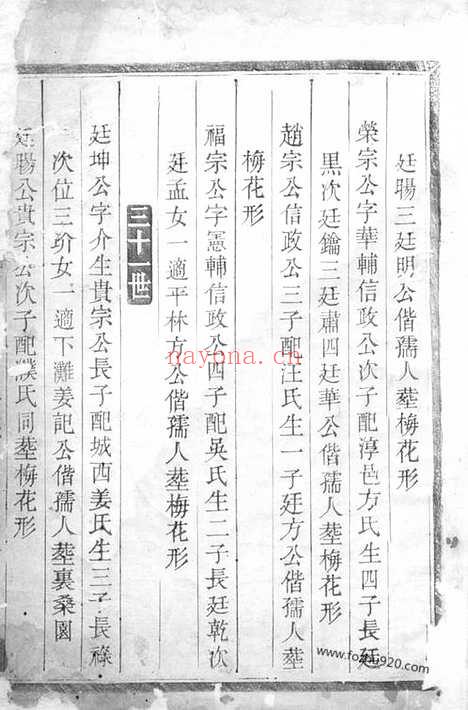 廷暘三廷明公偕孺人塟梅花形
榮宗公字華輔信政公次子配淳邑方氏生四子長廷
黑次廷鑰三廷肅四廷華公偕孺人塟梅花形
趙宗公信政公三子配汪氏生一子廷方公偕孺人塟
梅花形
福宗公字憲輔信政公四子配吳氏生二子長廷乾次
廷孟女一適平林方公偕孺人塟梅花形
三十一世
廷坤公字介生貴宗公長子配城西姜氏生三子長祿
次位三玠女一適下灘姜記公偕孺人塟裏桑園
廷暘公貴宗公次子配濮氏同塟梅花形
nayona.cn
www.foxun920.com